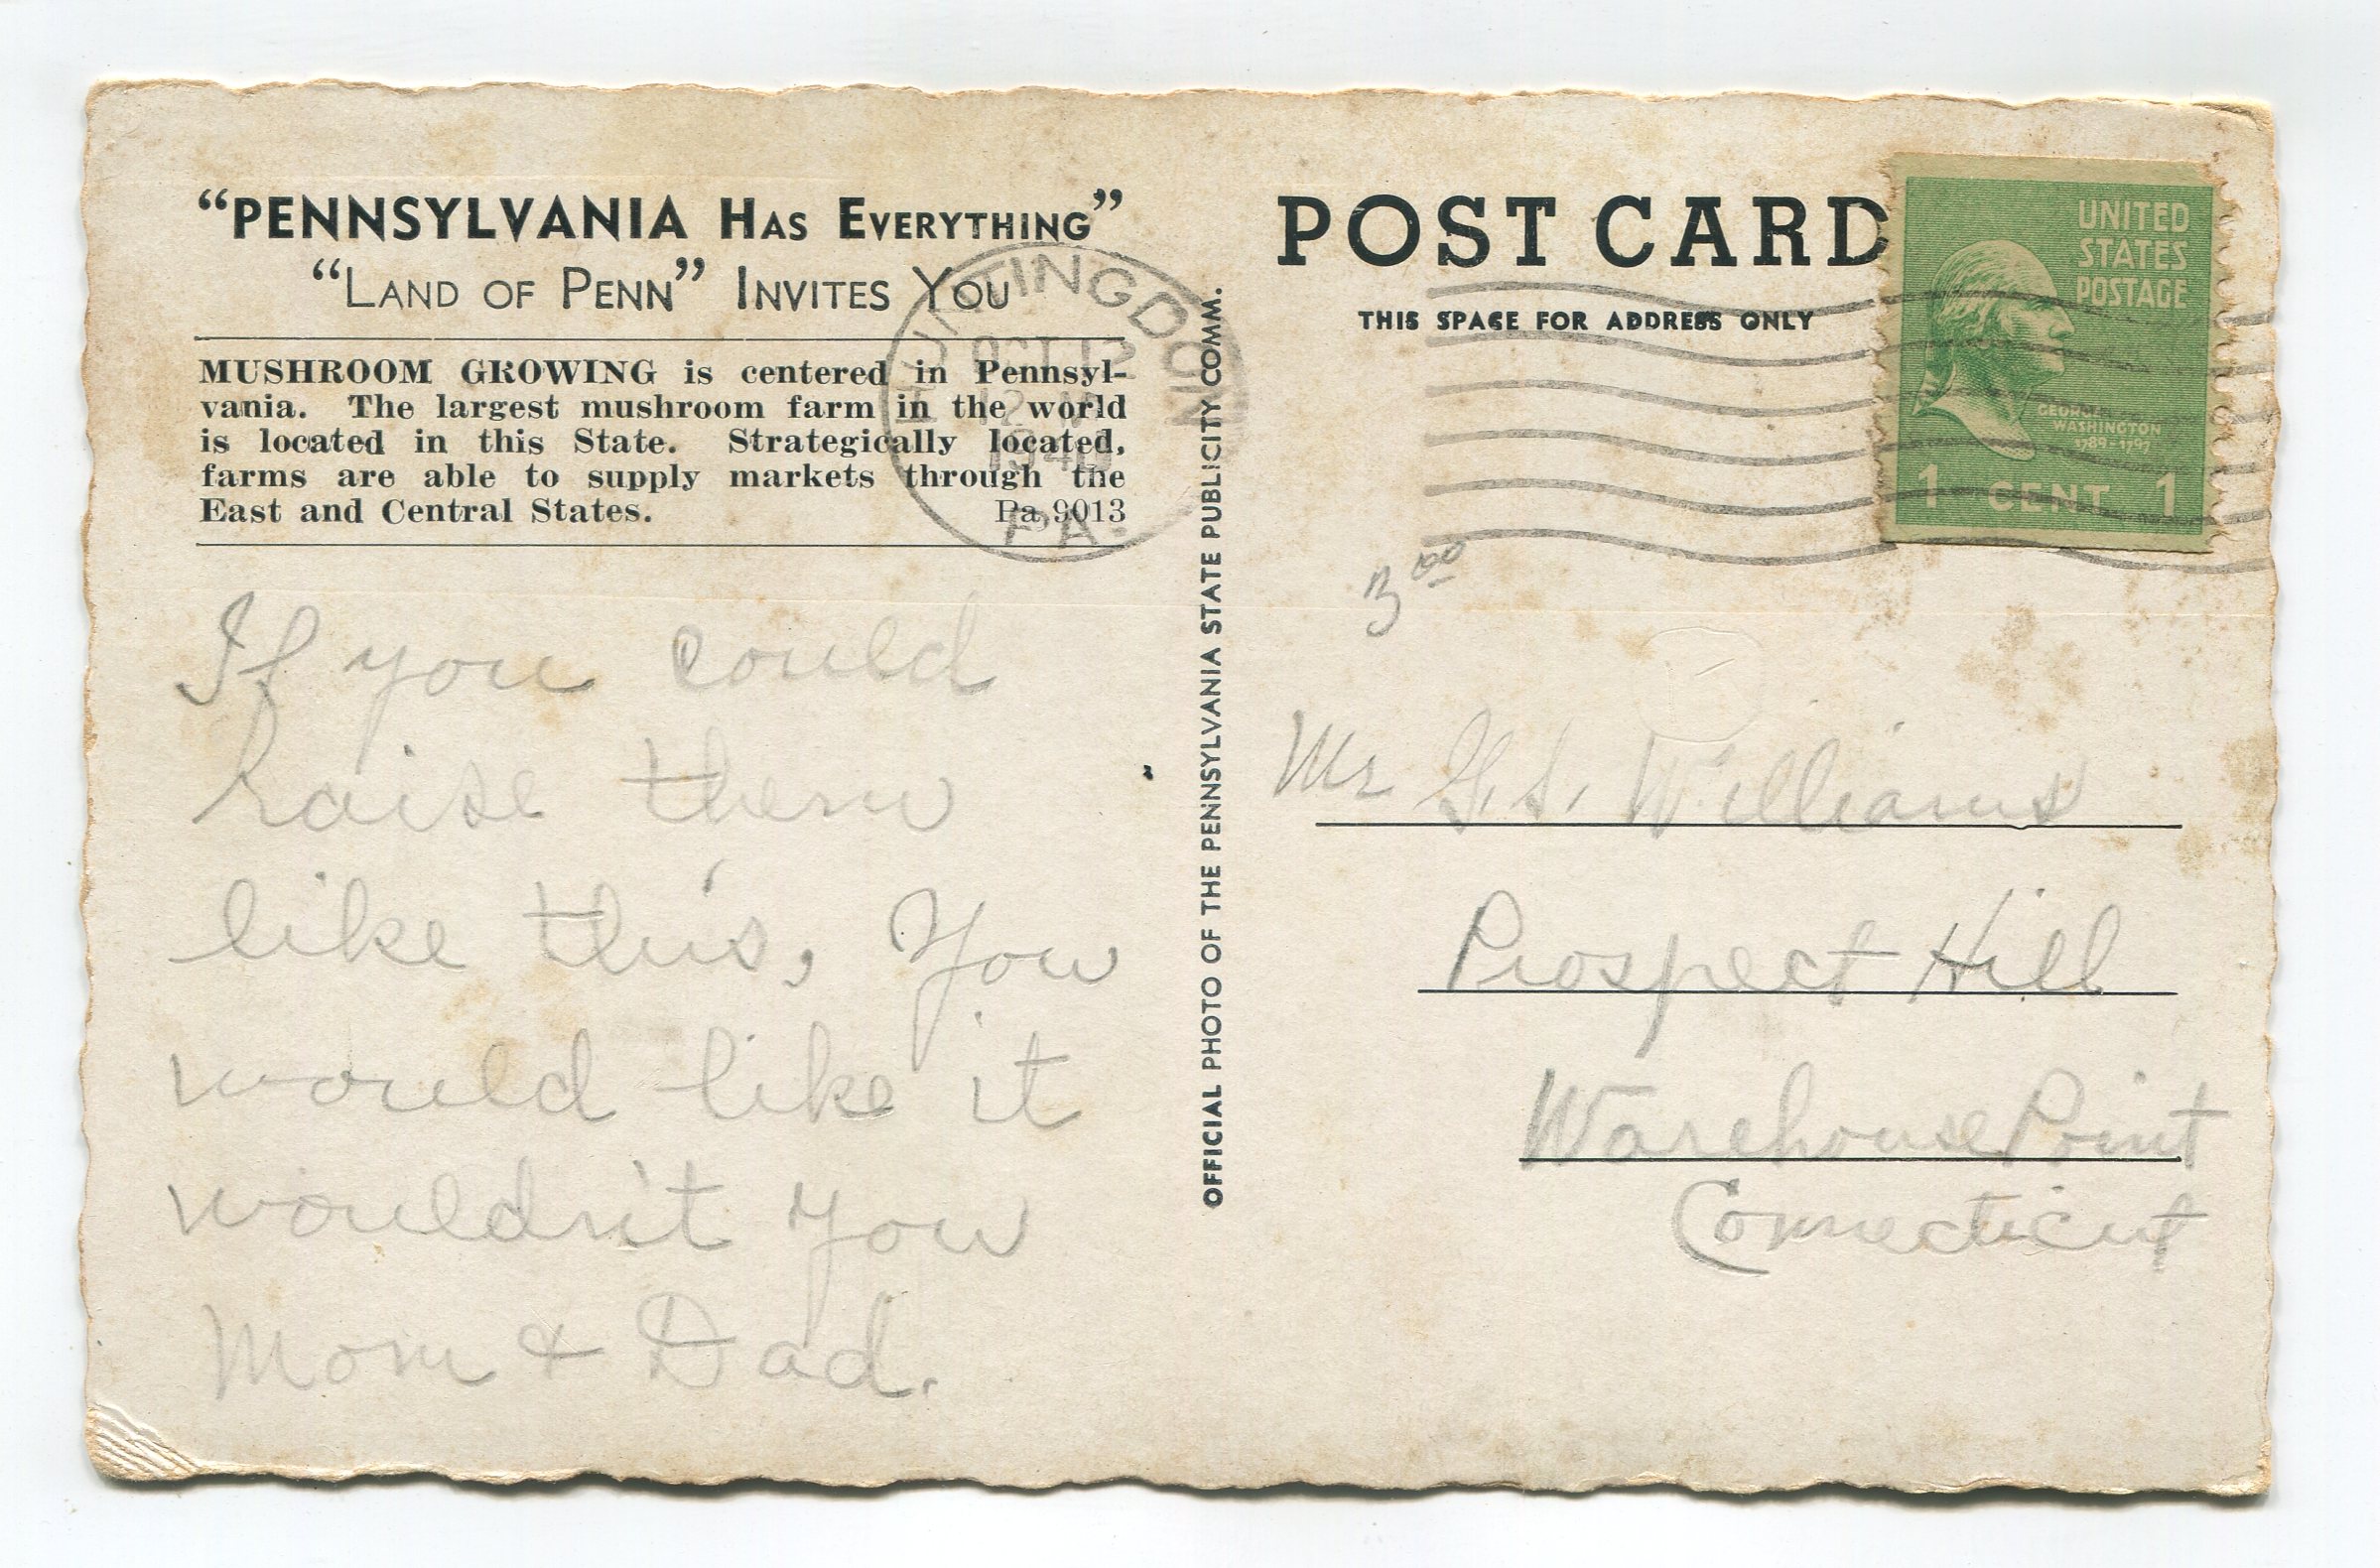 “PENNSYLVANIA HAS EVERYTHING”
“LAND OF PENN” INVITES YOU
MUSHROOM GROWING is centered in Pennsyl-
vania. The largest mushroom farm in the world
is located in this State. Strategically located,
farms are able to supply markets through the
East and Central States. Pa 9013
HUNTINGDON
OCT 12
1940
PA.
If you could
raise them
like this, You
would like it
wouldn't you
Mom & Dad.
OFFICIAL PHOTO OF THE PENNSYLVANIA STATE PUBLICITY COMM.
POST CARD
THIS SPACE FOR ADDRESS ONLY
UNITED
STATES
POSTAGE
GEORGE
WASHINGTON
1789-1797
1 CENT 1
3 00
Mr Williams
Prospect Hill
Warehouse Point
Connecticut